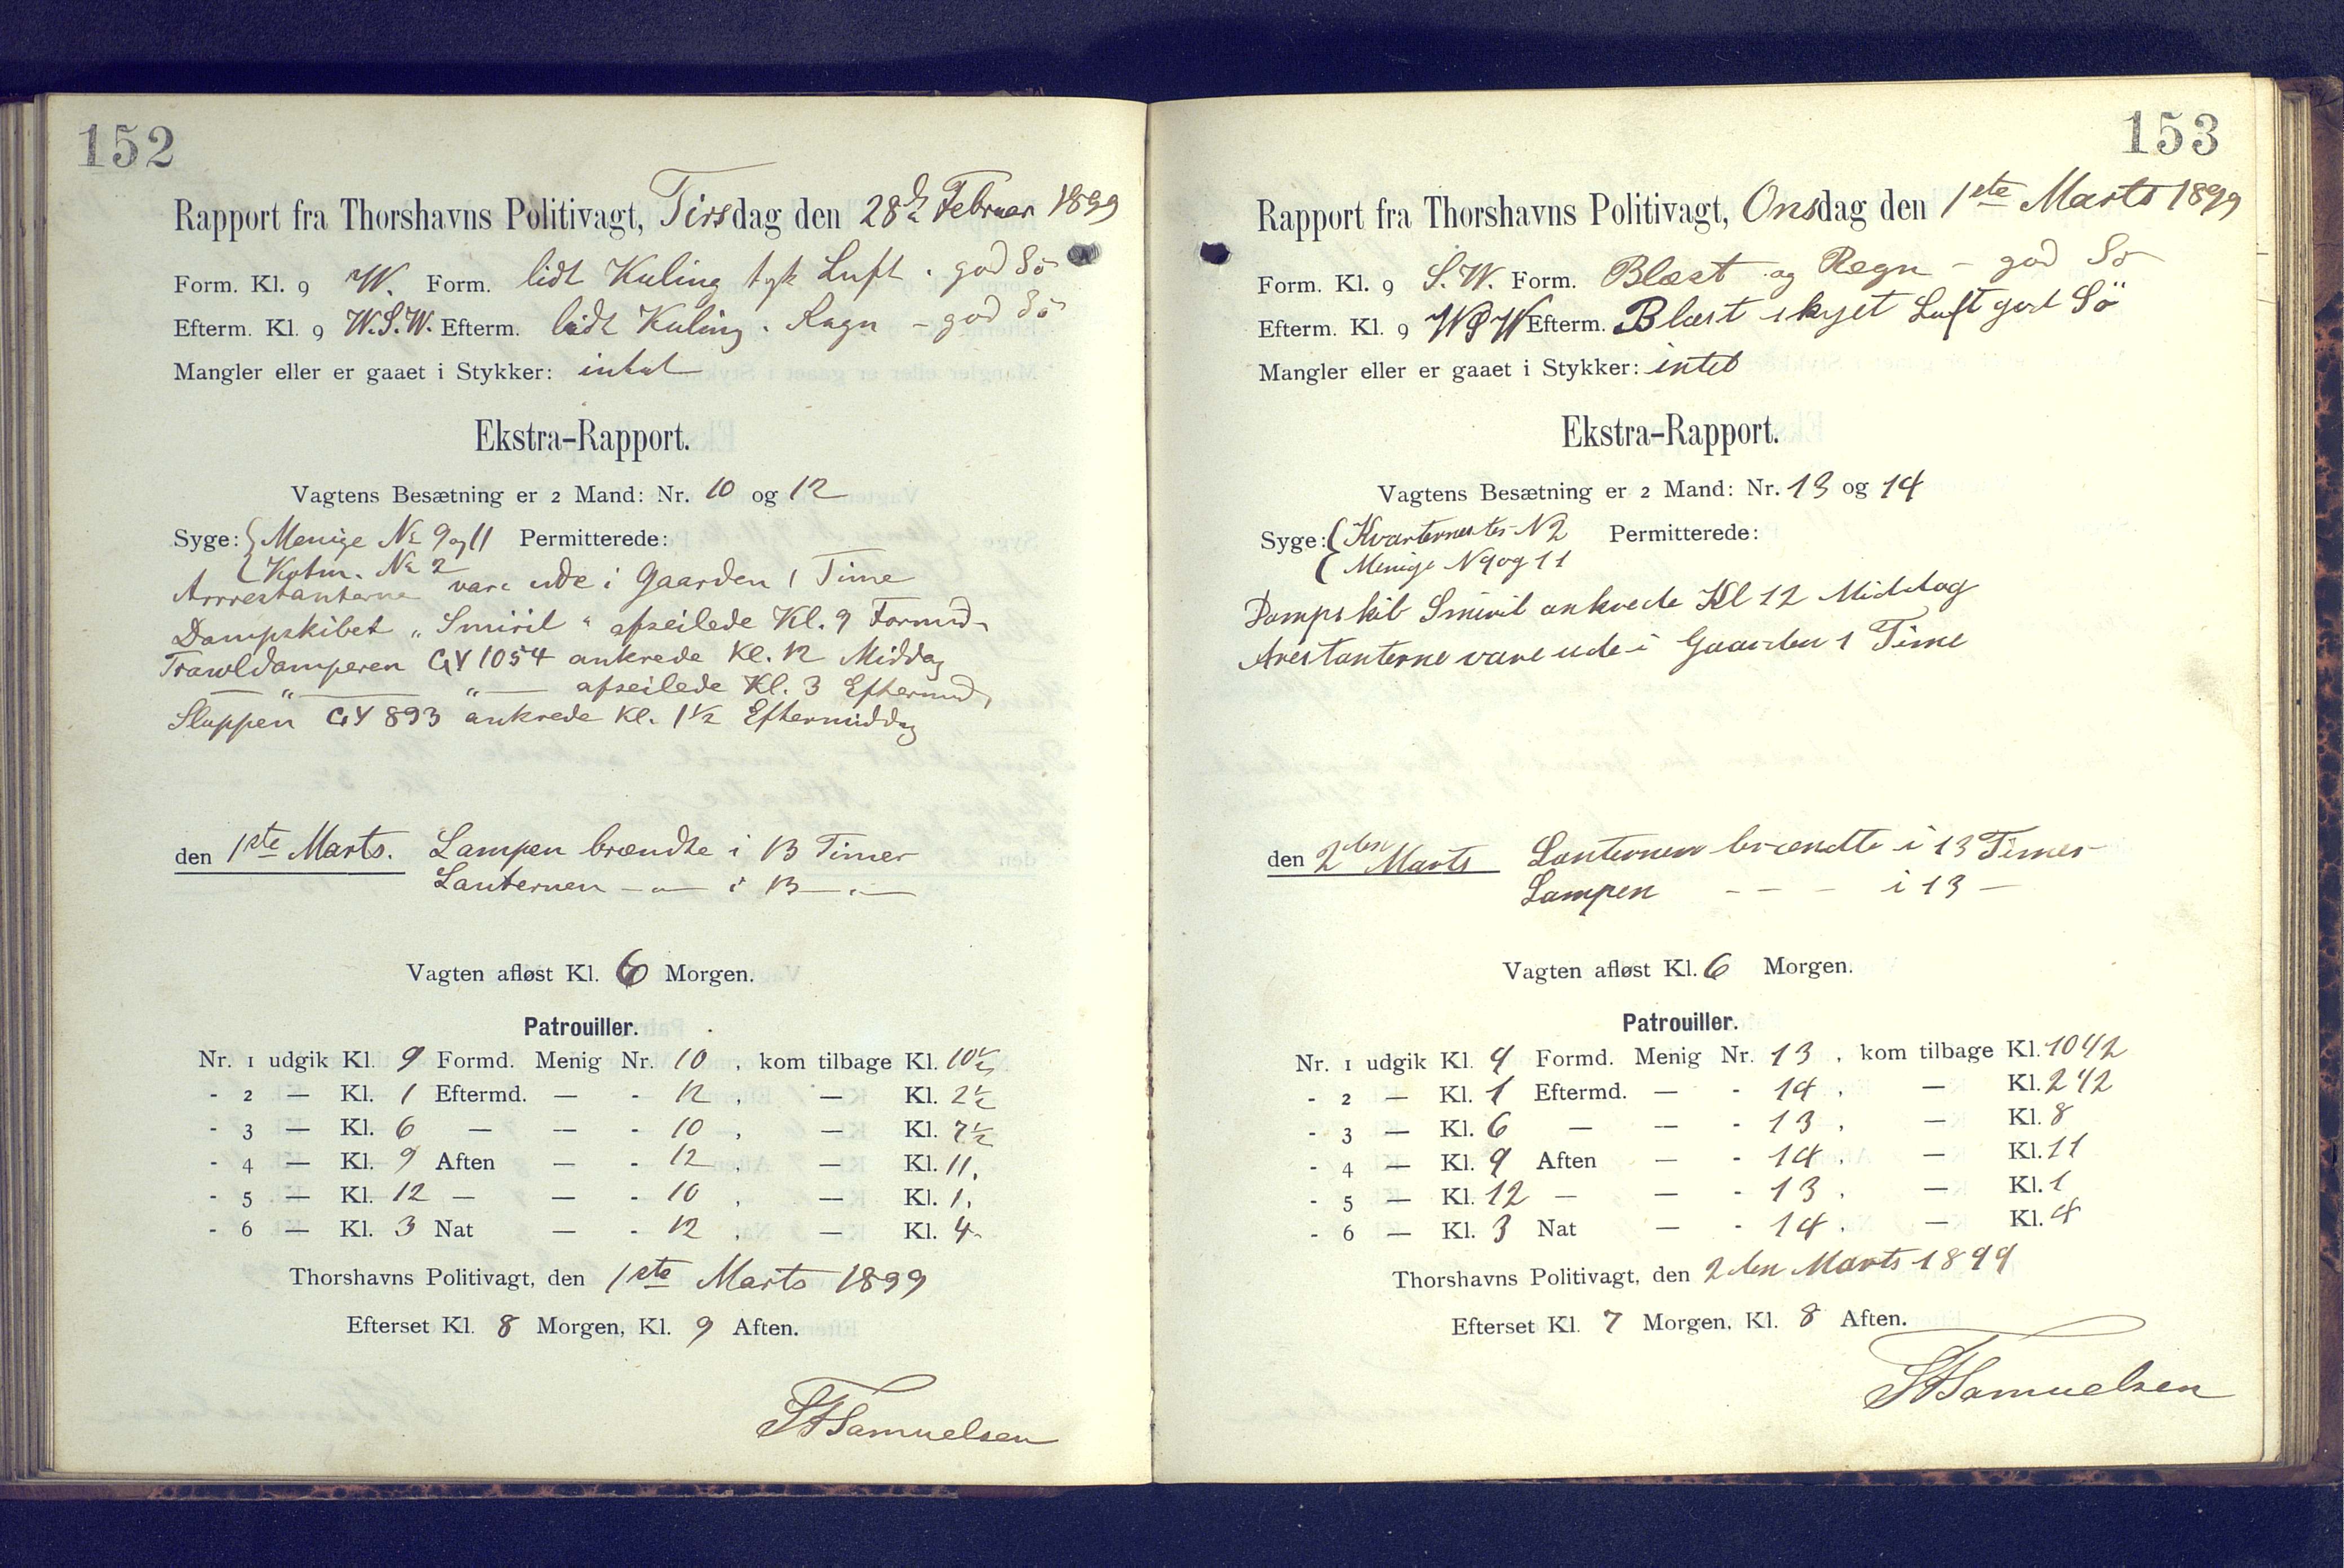 152
Rapport fra Thorshavns Politivagt, Tirsdag den 28de Februar 1899
Form. Kl. 9 W. Form. lidt Kuling tyk Luft. god Sö
Efterm. Kl. 9 W.S.W. Efterm. lidt Kuling. Regn – god Sö
Mangler eller er gaaet i Stykker: intet
Ekstra-Rapport.
Vagtens Besætning er 2 Mand: Nr. 10 og 12
Syge: { Menige No 9 og 11 Permitterede:
{ Kvtm. No 2
Arrrestanterne vare ude i Gaarden 1 Time
Dampskibet „Smiril“ afseilede Kl. 9 Formd.
Trawldamperen GY 1054 ankrede Kl. 12 Middag
— „ — „ — afseilede Kl. 3 Eftermd.
Sluppen GY 893 ankrede Kl. 1½ Eftermiddag
den 1ste Marts. Lampen brændte i 13 Timer
Lanternen — „ — i 13 — „ —
Vagten afløst Kl. 6 Morgen.
Patrouiller.
Nr. 1 udgik Kl. 9 Formd. Menig Nr. 10 , kom tilbage Kl. 10½
- 2 — Kl. 1 Eftermd. — - 12 , — Kl. 2½
- 3 — Kl. 6 — — - 10 , — Kl. 7½
- 4 — Kl. 9 Aften — - 12 , — Kl. 11.
- 5 — Kl. 12 — — - 10 , — Kl. 1.
- 6 — Kl. 3 Nat — - 12 , — Kl. 4.
Thorshavns Politivagt, den 1ste Marts 1899
Efterset Kl. 8 Morgen, Kl. 9 Aften.
Samuelsen
153
Rapport fra Thorshavns Politivagt, Onsdag den 1ste Marts 1899
Form. Kl. 9 S.W. Form. Blæst og Regn – god Sö
Efterm. Kl. 9 WSW Efterm. Blæst skyet Luft god Sö
Mangler eller er gaaet i Stykker: intet
Ekstra-Rapport.
Vagtens Besætning er 2 Mand: Nr. 13 og 14
Syge: { Kvartermester N 2 Permitterede:
{ Menige N 9 og 11
Dampskib Smiril ankrede Kl 12 Middag
Arestanterne vare ude i Gaarden 1 Time
den 2den Marts Lanternen brændte i 13 Timer
Lampen – – – i 13 –
Vagten afløst Kl. 6 Morgen.
Patrouiller.
Nr. 1 udgik Kl. 9 Formd. Menig Nr. 13 , kom tilbage Kl. 10½
- 2 — Kl. 1 Eftermd. — - 14 , — Kl. 2½
- 3 — Kl. 6 — — - 13 , — Kl. 8
- 4 — Kl. 9 Aften — - 14 , — Kl. 11
- 5 — Kl. 12 — — - 13 , — Kl. 1
- 6 — Kl. 3 Nat — - 14 , — Kl. 4
Thorshavns Politivagt, den 2den Marts 1899
Efterset Kl. 7 Morgen, Kl. 8 Aften.
Samuelsen